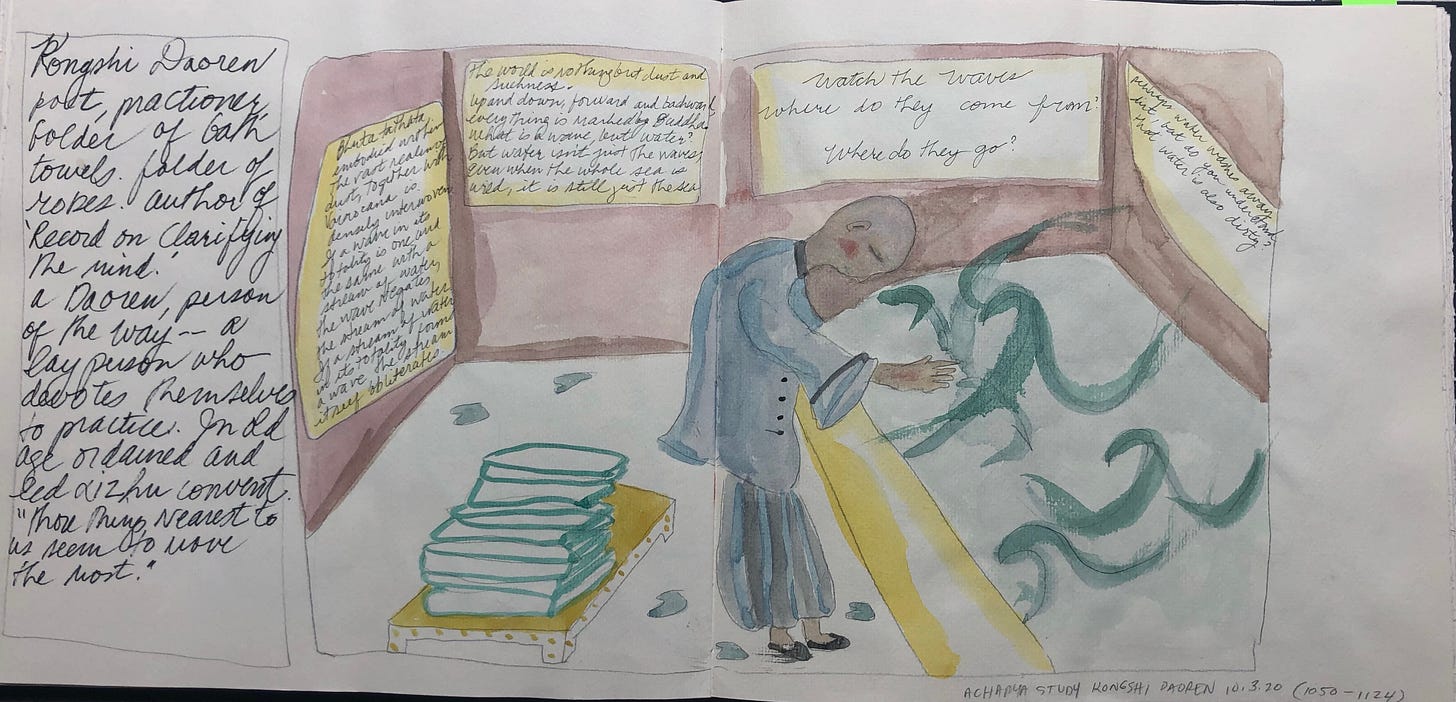 Kongshi Daoren
poet, practioner,
folder of bath
towels. folder of
robes. author of
'Record on Clarifying
the mind.'
a Daoren, person
of the way -- a
layperson who
devotes themselves
to practice. In old
age ordained and
led convent.
"Those things nearest to
us seem to move
the most."
Bhuta tathata
embodied within
the vast realm of
dust, together with
Vairocana is
densely interwoven
If a wave in its
totality is one and
the same with a
stream of water,
the wave negates
the stream of water
If a stream of water
in its totality forms
a wave the stream
itself obliterates
The world is nothing but dust and
suchness.
Up and down, forward and backward
everything is marked by Buddha
what is a wave, but water?
But water isn't just the waves,
Even when the whole sea is
used, it is still just the sea
Watch the waves
where do they come from?
Where do they go?
Perhaps water washes away
dirt, but do you understand
that water is also dirty?
ACHARYA STUDY KONGSHI DAOREN 10.3.20 (1050-1124)